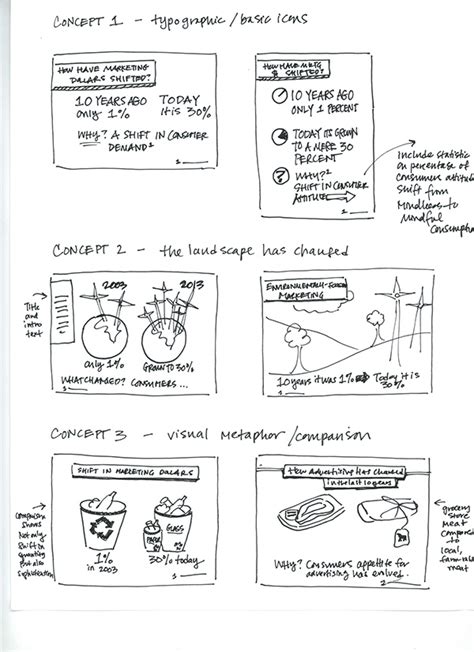 CONCEPT 1 - typographic/basic icons
HOW HAVE MARKETING
DOLLARS SHIFTED?
10 YEARS AGO
only 1%
TODAY
it is 30%
WHY? A SHIFT IN CONSUMER
DEMAND
HOW HAVE MKTG
$ SHIFTED?
10 YEARS AGO
ONLY 1 PERCENT
TODAY ITS GROWN
TO A MERE 30
PERCENT
WHY?²
SHIFT IN CONSUMER
ATTITUDE
include statistic
on percentage of
consumers attitude
shift from
Mindless to
mindful
consumption
CONCEPT 2 - the landscape has changed
Title
and
intro
text
2003
2013
only 1%
GROWN TO 30%
WHAT CHANGED? CONSUMERS...
MARKETING
10 years it was 1%
Today it is
30%
CONCEPT 3 - visual metaphor/comparison
comparison
shows
Not only
shift in
quantity
but also
sophistication
SHIFT IN MARKETING DOLLARS
PAPER
GLASS
1%
in 2003
30% today
How Advertising Has Changed
in the last 10 years
Why? Consumers appetite for
advertising has evolved.
grocery
store
meat
comparison
to
local,
meat